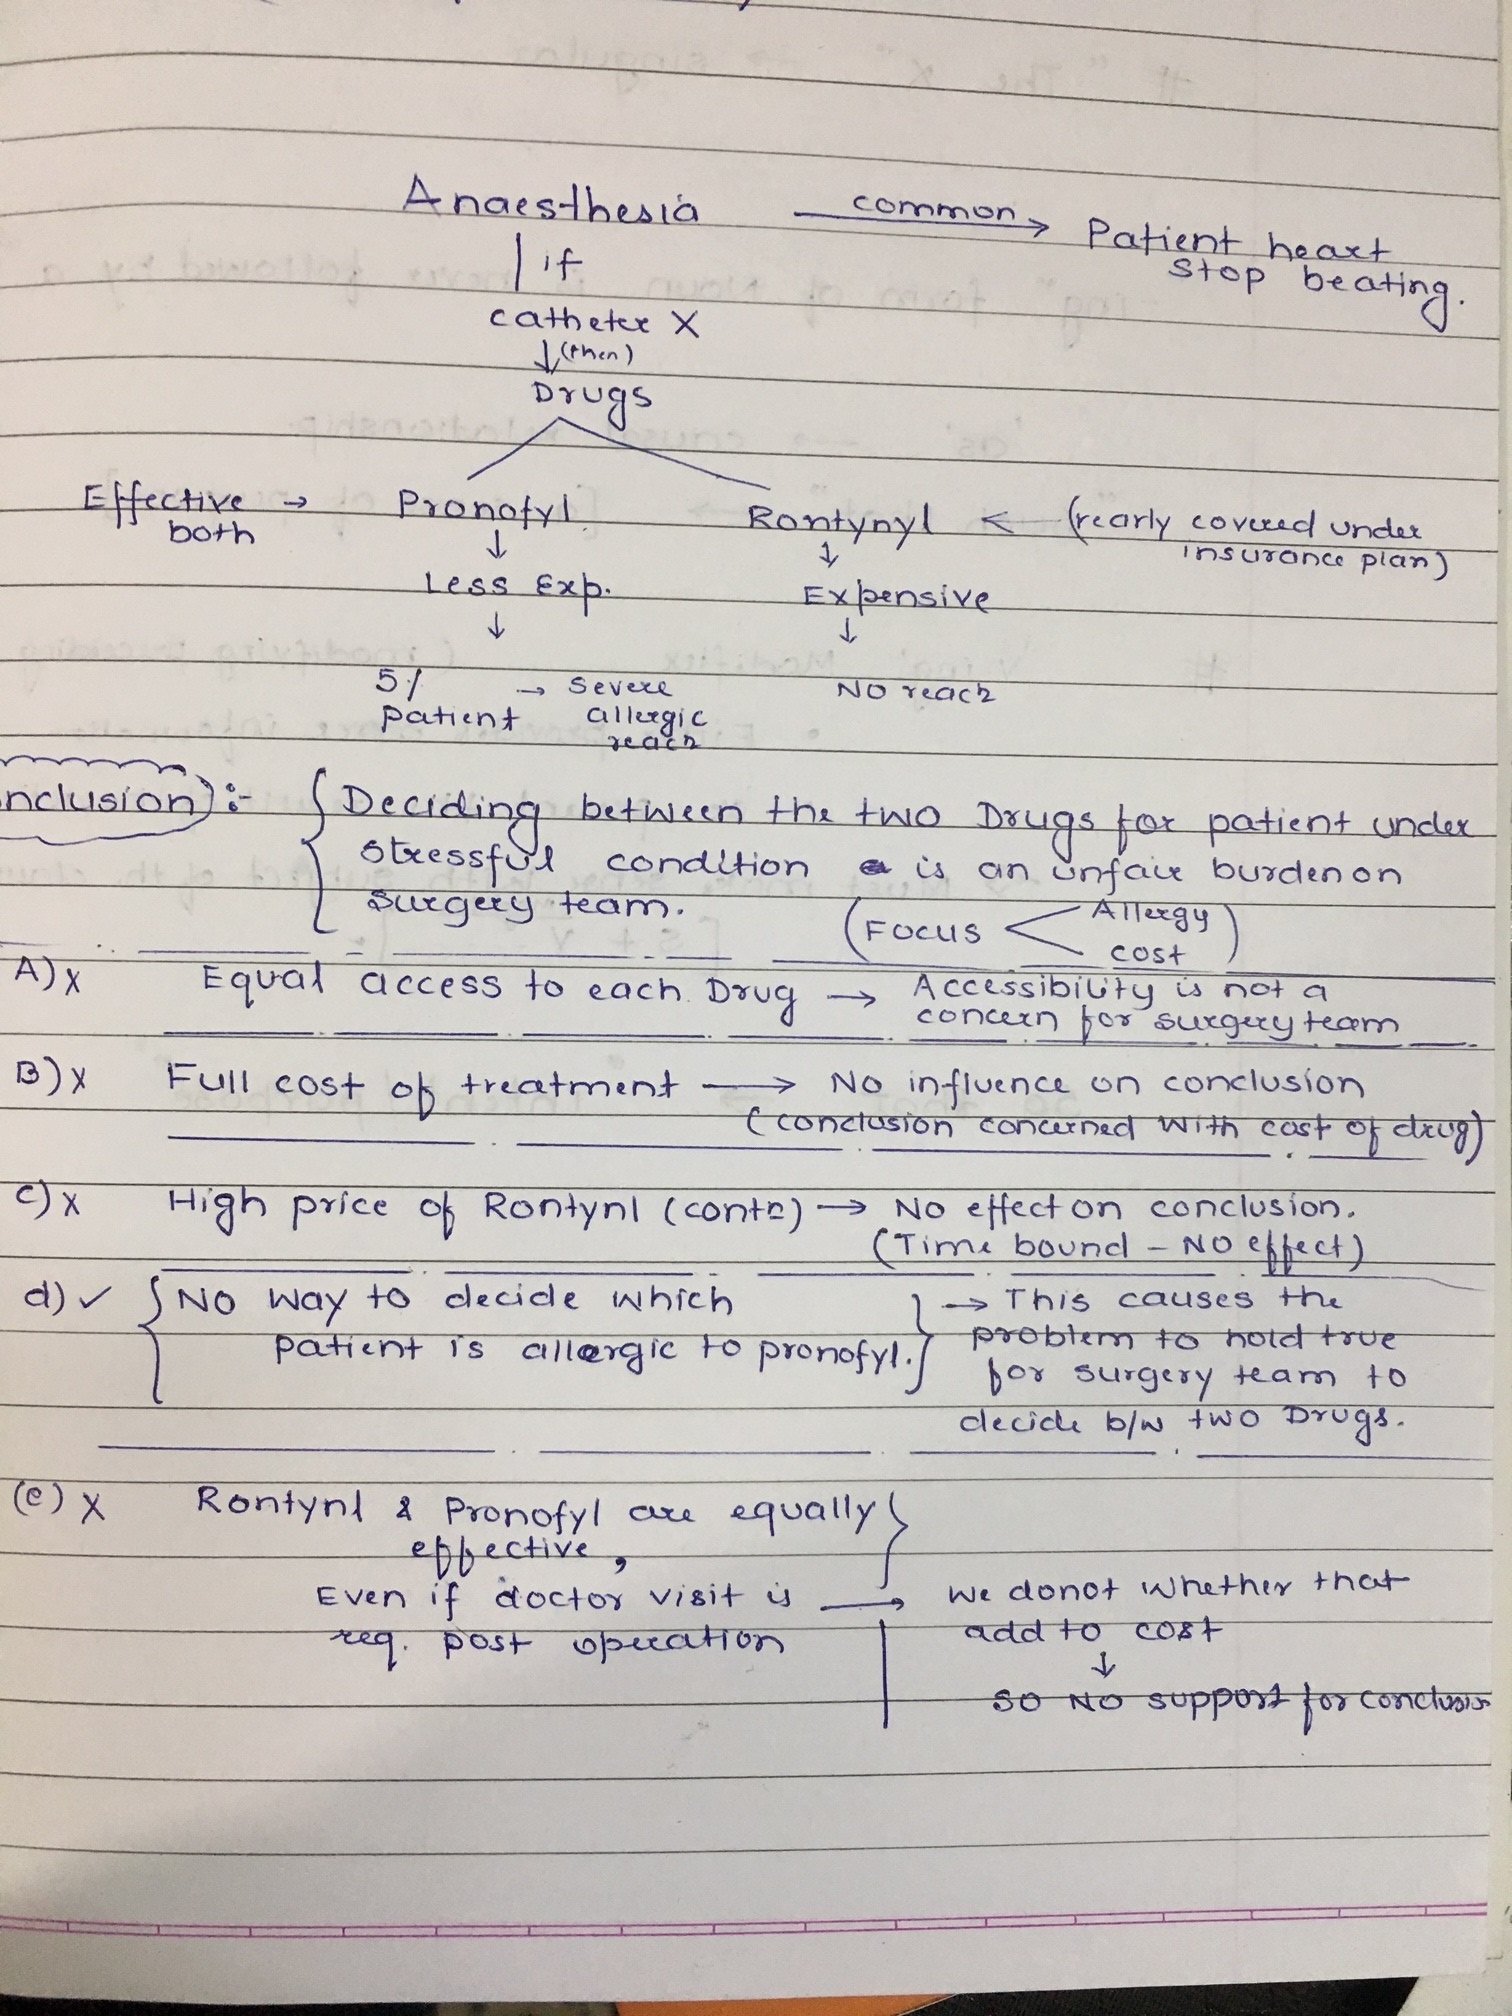 Anaesthesia common → Patient heart
stop beating.
| if
catheter X
↓ (then)
Drugs
Effective → Pronofyl Rontynyl ← (rearly covered under
both insurance plan)
↓ ↓
Less Exp. Expensive
↓ ↓
5% → severe NO reacn
patient allergic
reacn
nclusion) :- { Deciding between the two Drugs for patient under
stressful condition is an unfair burden on
surgery team.
(Focus < Allergy
cost)
A) X Equal access to each Drug → Accessibility is not a
concern for surgery team
B) X Full cost of treatment → No influence on conclusion
(conclusion concerned with cost of drug)
c) X High price of Rontynl (contn) → No effect on conclusion.
(Time bound - NO effect)
d) ✓ { No way to decide which } → This causes the
patient is allergic to pronofyl. problem to hold true
for surgery team to
decide b/w two Drugs.
(e) X Rontynl & Pronofyl are equally }
effective,
Even if doctor visit is → we donot whether that
req. post operation add to cost
↓
so NO support for conclusion